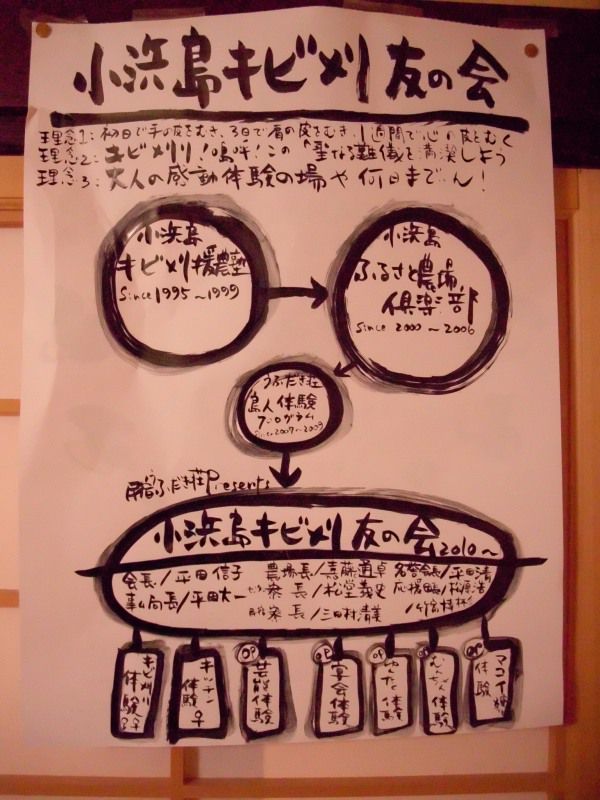 小浜島キビメリ 友の会
理念1: 初日で手の皮をむき、3日で肩の皮をむき、1週間で心の皮をむく
理念2: キビメリリ!嗚呼!この「聖なる難儀を満喫しよう
理念3: 大人の感動体験の場や 何日までぃん!
小浜島
キビ刈援農塾
Since 1995～1999
小浜島
ふるさと農場
倶楽部
Since 2000～2006
うふだき荘
島人体験
プログラム
Since 2007～2009
うふだき荘 Presents
小浜島キビ刈 友の会 2010～
会長/平田 信子 農場長/嘉藤道卓 名誉会長/平田清
事務局長/平田大一 寮長/松堂義史 応援団長/松原浩
寮長/三田村清美
キビ刈り
体験
キッチン
体験
OP
芸能体験
OP
宴会体験
OP
体験
OP
体験
OP
体験